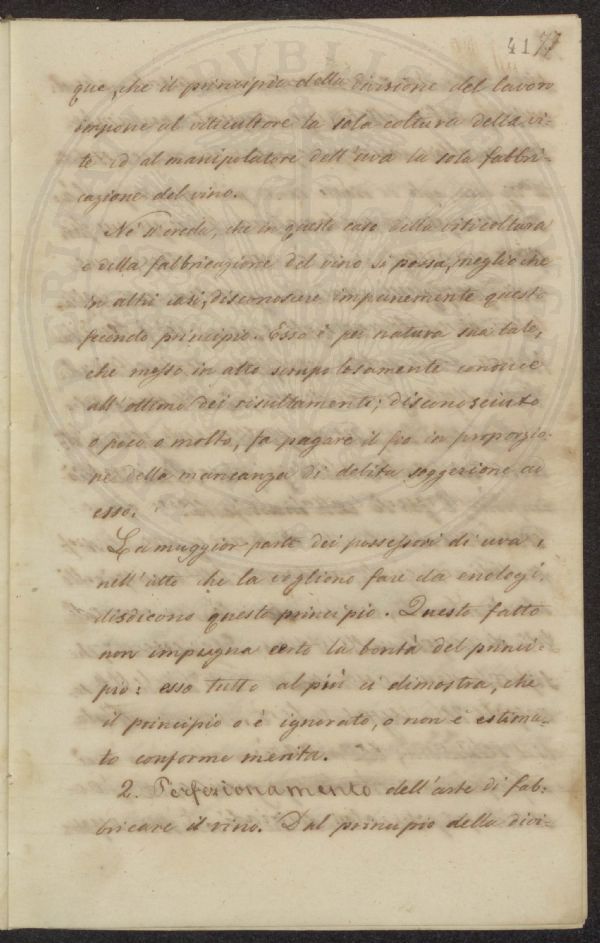 41 77
que, che il principio della divisione del lavoro
impone al viticultore la sola coltura della vi-
te ed al manipolatore dell'uva la sola fabbri-
cazione del vino.
Nè si creda, che in questo caso della viticoltura
e della fabbricazione del vino si possa, meglio che
in altri casi, disconoscere impunemente questo
fecondo principio. Esso è per natura sua tale,
che messo in atto scrupolosamente conduce
all'ottimo dei risultamenti; disconosciuto
o poco o molto, fa pagare il fio in proporzio-
ne della mancanza di debita soggezione ad
esso.
La maggior parte dei possessori di uva,
nell'atto che la vogliono fare da enologi,
disdicono questo principio. Questo fatto
non impugna certo la bontà del princi-
pio: esso tutto al più ci dimostra, che
il principio o è ignorato, o non è estima-
to conforme merita.
2. Perfezionamento dell'arte di fab-
bricare il vino. Dal principio della divi-